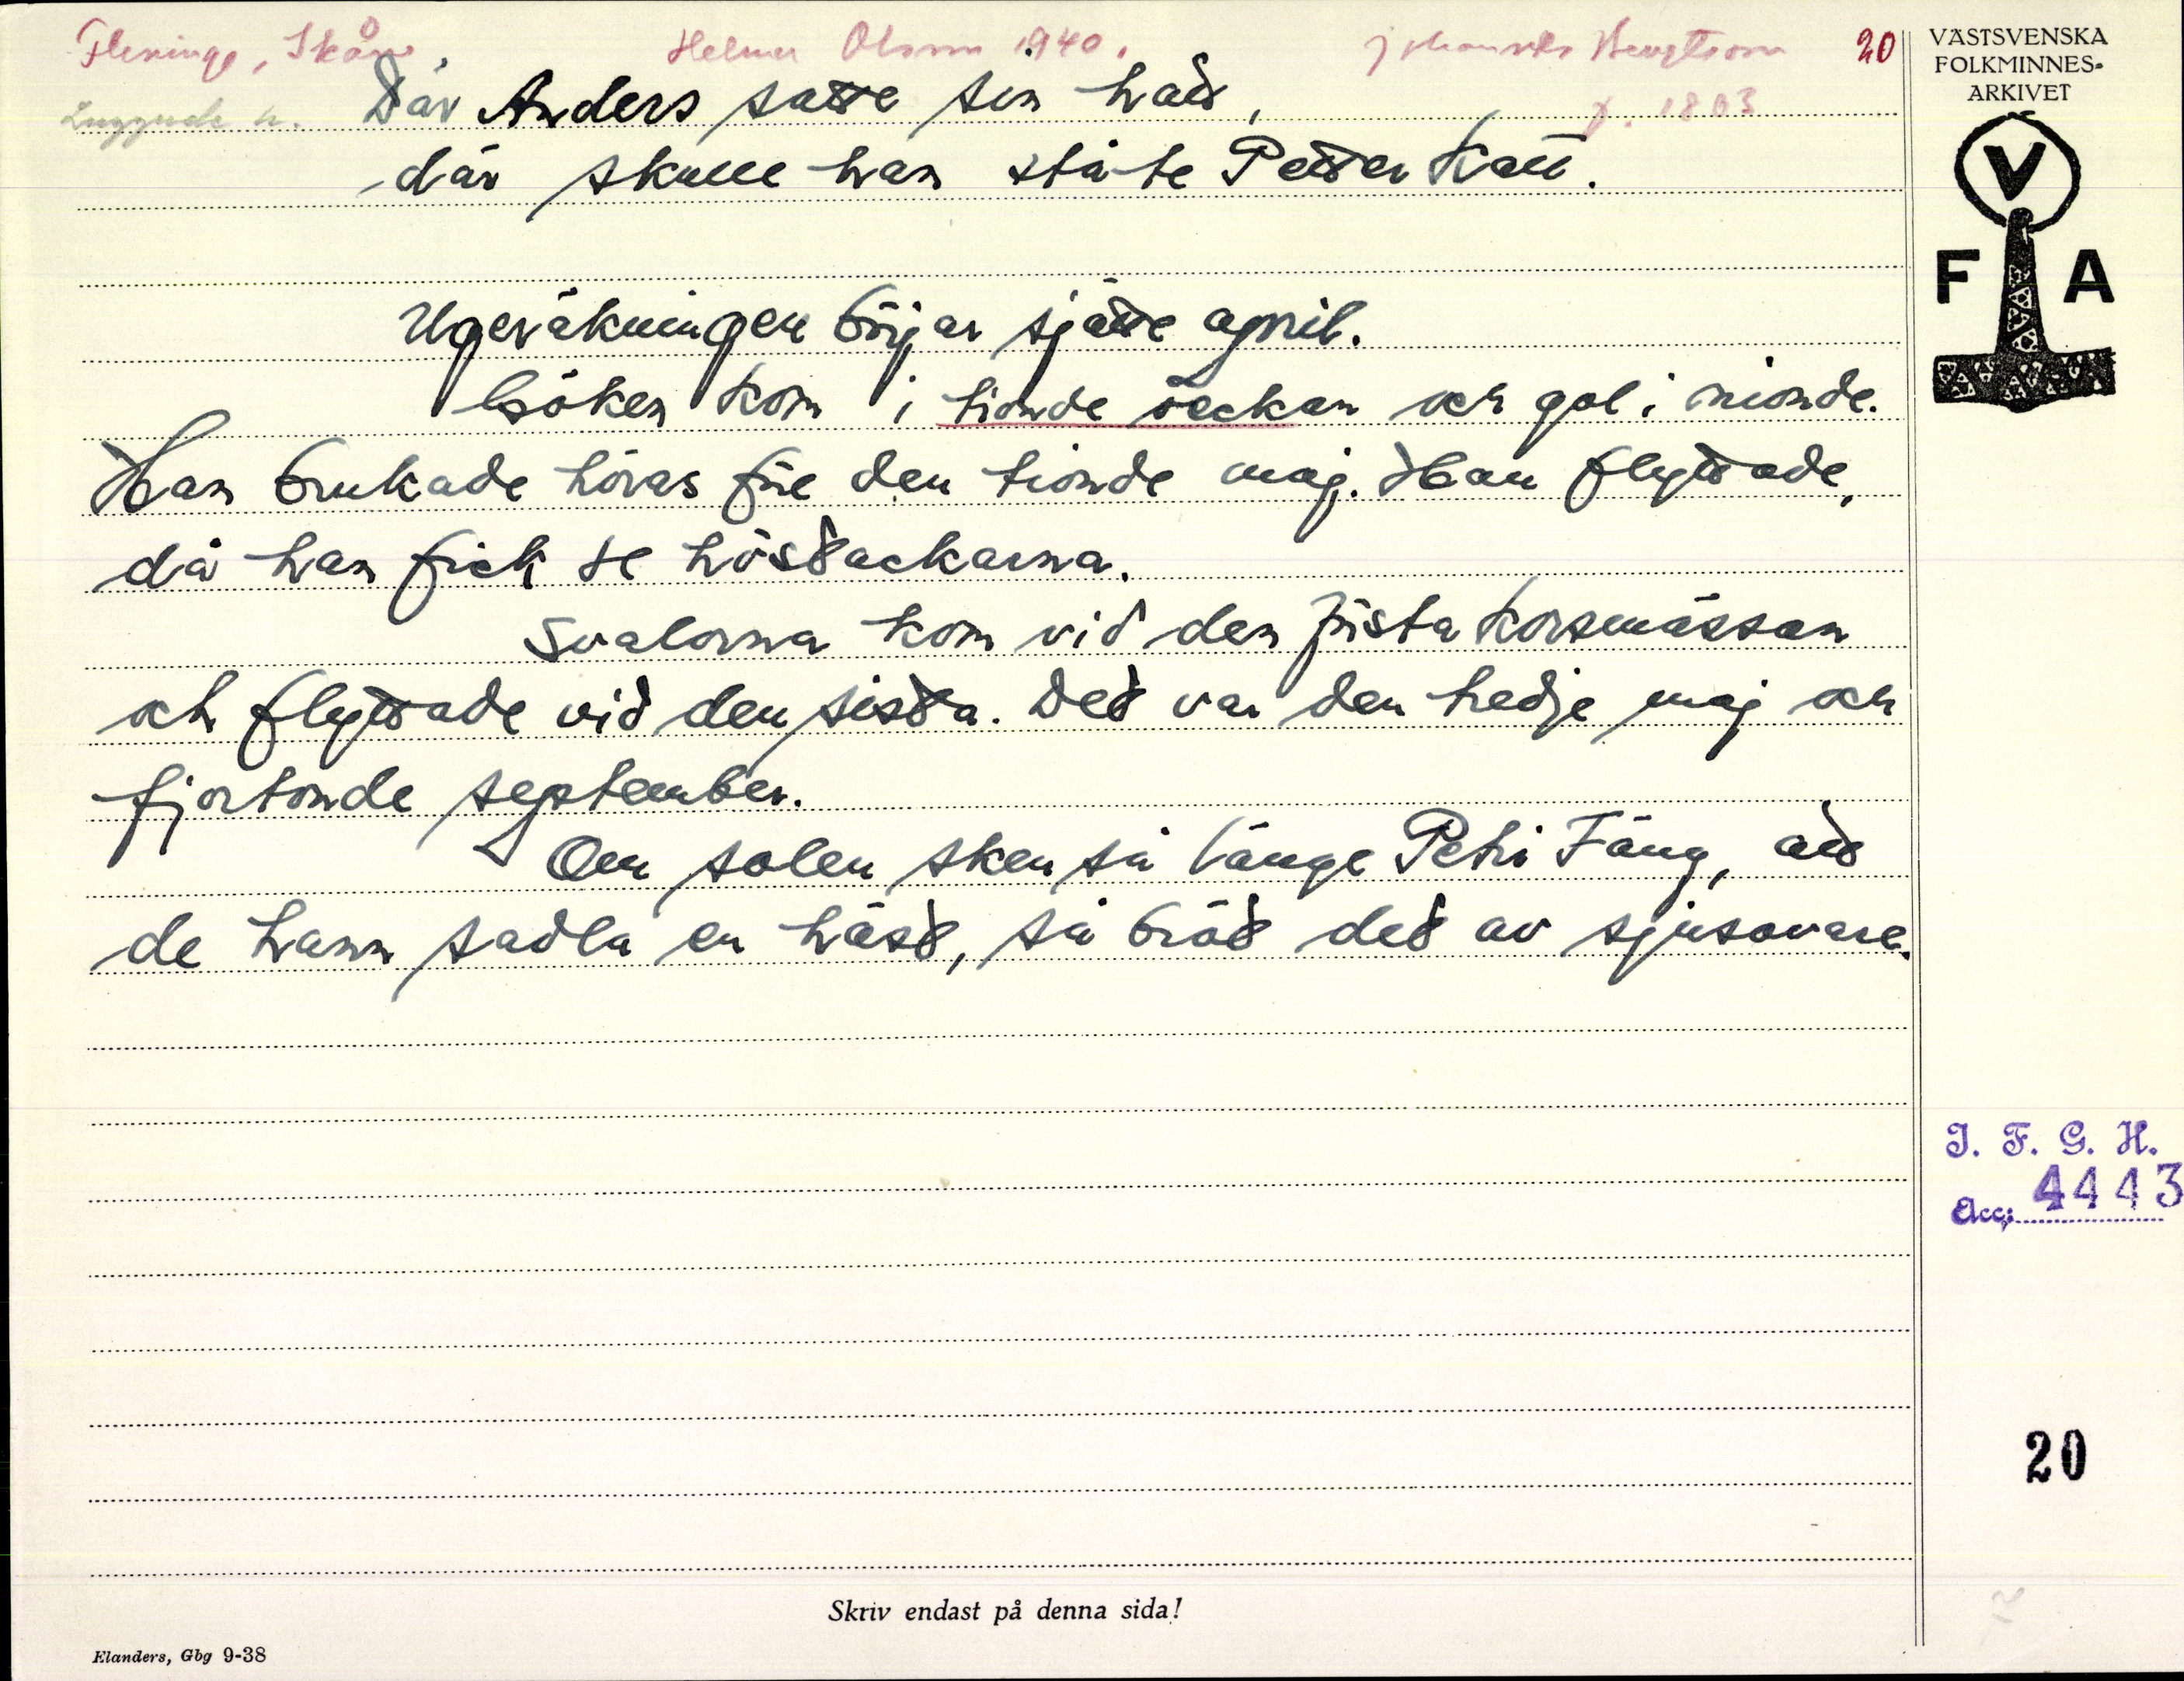 Fleninge, Skåne. Helmer Olsson 1940. Johannes Bengtsson 20
Luggude h. f. 1863
Där Anders satte sin hatt,
där skulle han stå te Petter Katt.
Ugeräkningen börjar sjätte april.
Göken kom i tionde veckan och gol i nionde.
Han brukade höras före den tionde maj. Han flyttade,
då han fick se höstackarna.
Svalorna kom vid den första korsmässan
och flyttade vid den sista. Det var den tredje maj och
fjortonde september.
Om solen sken så länge Petri Fäng, att
de hann sadla en häst, så bröt det av sjusovare.
VÄSTSVENSKA
FOLKMINNES-
ARKIVET
V
F A
I. F. G. H.
Acc: 4443
20
Skriv endast på denna sida!
Elanders, Gbg 9-38